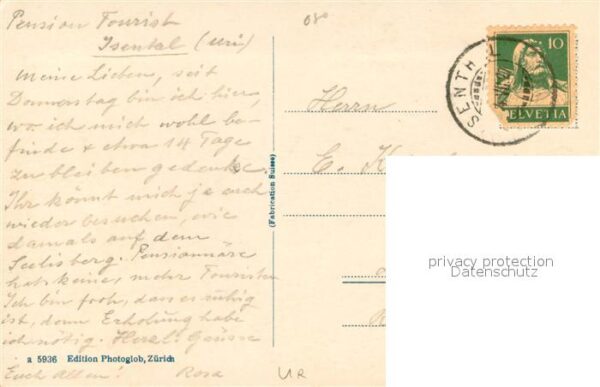 Pension Tourist
Isental (Uri)
Meine Lieben, seit
Donnerstag bin ich hier,
wo ich mich wohl be-
finde & etwa 14 Tage
zu bleiben gedenke.
Ihr könnt mich ja auch
wieder besuchen, wie
damals auf dem
Seelisberg. Pensionäre
hats keine, mehr Touristen
Ich bin froh, dass es ruhig
ist, denn Erholung habe
ich nötig. Herzl. Grüsse
Euch Allen! Rosa
a 5936 Edition Photoglob, Zürich
(Fabrication Suisse)
080
Herrn
E.
ISENTHAL
10
HELVETIA
privacy protection
Datenschutz
UR